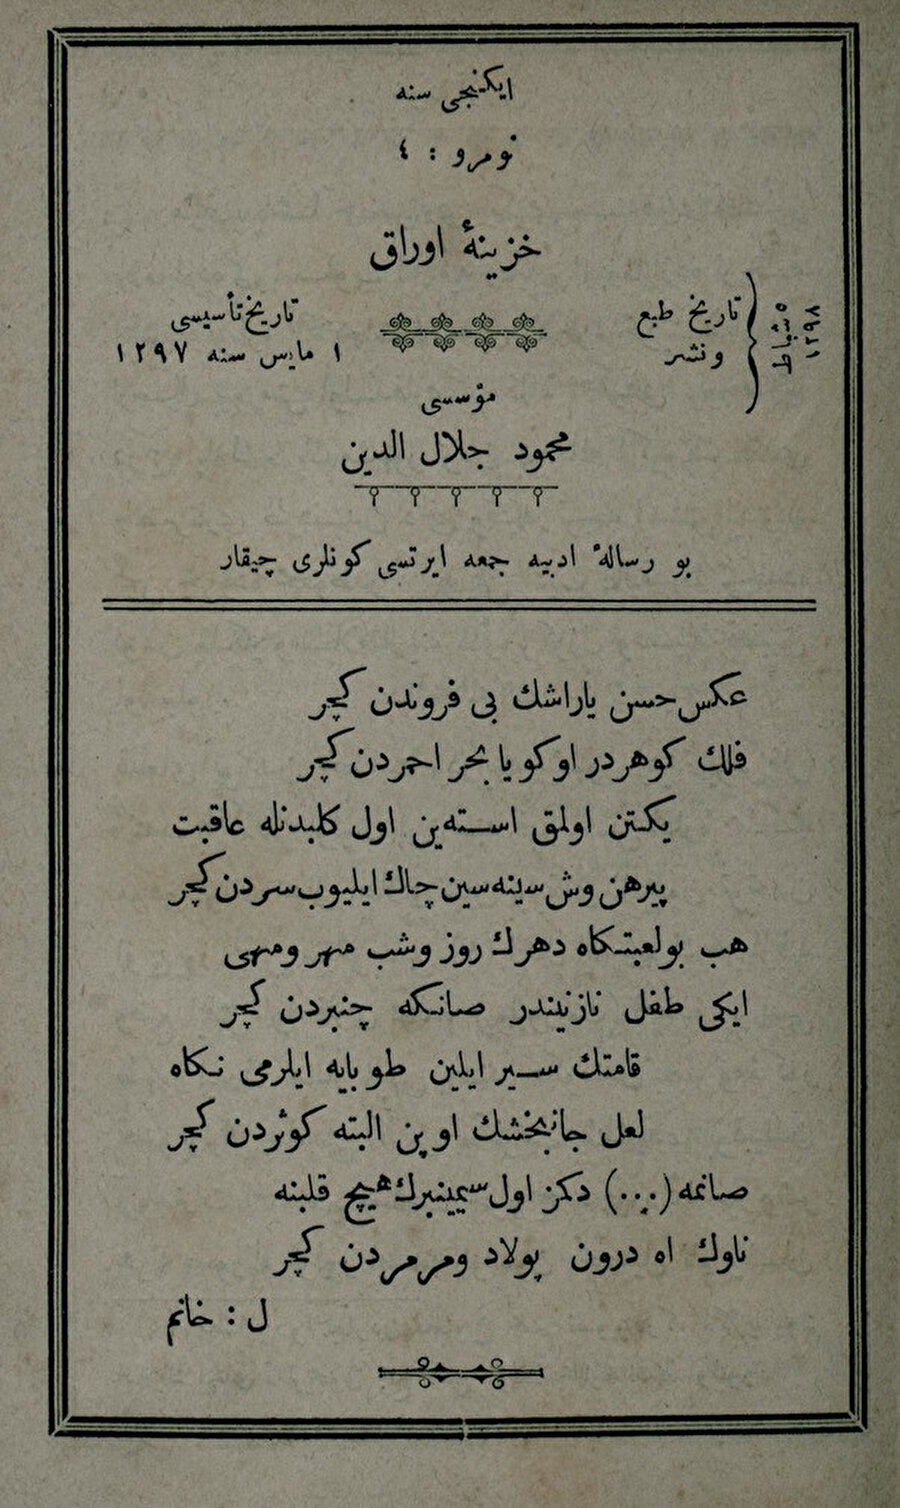 ایكنجی سنه
نومرو : ٤
خزینهٔ اوراق
تاریخ طبع ونشر
٥ شباط ١٢٩٨
تاریخ تأسیسی
١ مارس سنه ١٢٩٧
مؤسسی
محمود جلال الدین
بو رسالهٔ ادبیه جمعه ایرتسی كونلری چیقار
عكس حسن یاراشك بی فروندن كچر
فلك كوهردر او كویا بحر احمردن كچر
یكتن اولمق استەین اول كلبدنله عاقبت
پیرهن وش سینه سین چاك ایلیوب سردن كچر
هب بو لعبتكاه دهرك روز وشب مهر ومهی
ایكی طفل نازنیندر صانكه چنبردن كچر
قامتك سیر ایلین طوبایه ایلرمی نكاه
لعل جانبخشك اوپن البته كوثردن كچر
صانمه (...) دكز اول سیمبرك هیچ قلبنه
ناوك اه درون پولاد ومرمردن كچر
ل : خانم